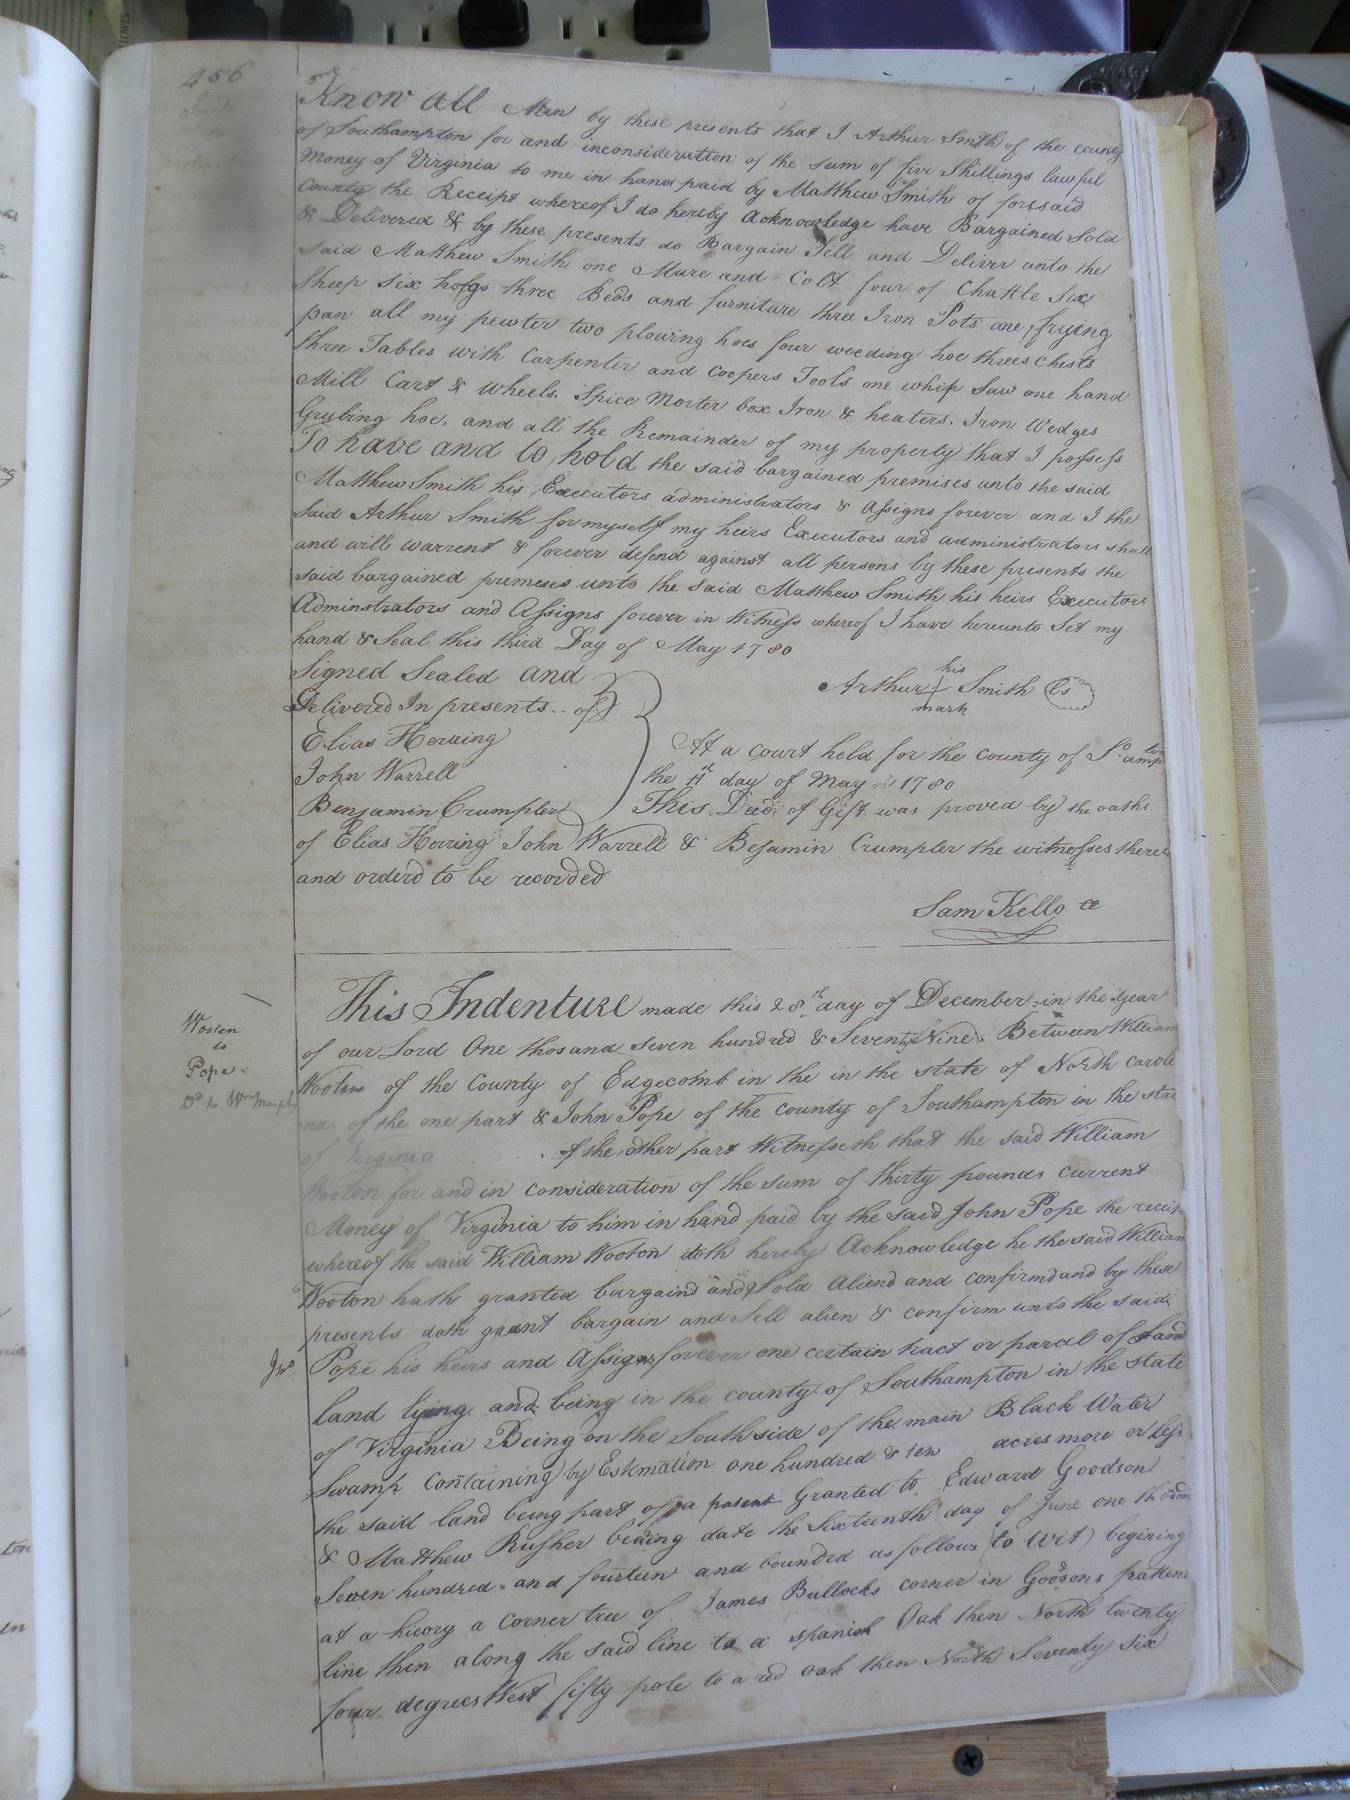 456
Smith
Know all Men by these presents that I Arthur Smith of the County
of Southampton for and inconsideration of the sum of five Shillings lawful
Money of Virginia to me in hand paid by Matthew Smith of foresaid
County the Receipt whereof I do hereby Acknowledge have Bargained Sold
& Delivered & by these presents do Bargain Sell and Deliver unto the
said Matthew Smith one Mare and Colt four of Chattle Six
Sheep six hoggs three Beds and furniture three Iron Pots one frying
pan all my pewter two plowing hoes four weeding hoe threes chests
three Tables with Carpenter and Coopers Tools one whip Saw one hand
Mill Cart & Wheels. Spice Morter box Iron & heaters. Iron Wedges
Grubing hoe, and all the Remainder of my property that I possess
To have and to hold the said bargained premises unto the said
Matthew Smith his Executors administrators & Assigns forever and I the
said Arthur Smith for myself my heirs Executors and administrators shall
and will warrent & forever defend against all persons by these presents the
said bargained premises unto the said Matthew Smith his heirs Executors
Adminstrators and Assigns forever in Witness whereof I have hereunto Set my
hand & Seal this third Day of May 1780
Signed Sealed and
Delivered In presents of
Arthur his mark Smith Ls
Elias Herring
John Warrell
Benjamin Crumpler
At a Court held for the County of So.ampton
the 11th day of May 1780
This Deed of Gift was proved by the oaths
of Elias Herring John Warrell & Bejamin Crumpler the witnesses thereto
and orderd to be recorded
Sam Kello cc
Wooten
to
Pope
Dd to Wm
This Indenture made this 28th day of December in the year
of our Lord One thosand Seven hundred & Seventy Nine Between William
Wooten of the County of Edgecomb in the in the state of North Caroli
na of the one part & John Pope of the county of Southampton in the stat
of Virginia of the other part Witnesseth that the said William
Wooton for and in consideration of the sum of thirty pounds current
Money of Virginia to him in hand paid by the said John Pope the receit
whereof the said William Wooton doth hereby Acknowledge he the said William
Wooton hath granted bargaind and Sold Aliend and confirmd and by these
presents doth graant bargain and Sell alien & confirm unto the said
Jno. Pope his heirs and Assigns forever one certain tract or parcel of Land
land lying and being in the county of Southampton in the state
of Virginia Being on the South side of the main Black Water
Swamp Containing by Estmation one hundred & ten acres more or less
the said land being part of a patent Granted to Edward Goodson
& Matthew Rusher bearing date the Sixteenth day of June one thousand
Seven hundred and fourteen and bounded as follows (to wit) begining
at a hicory a corner tree of James Bullocks corner in Goodsons patten
line then along the said line to a spanish Oak then North twenty
four degrees West fifty pole to a red oak then North Seventy six